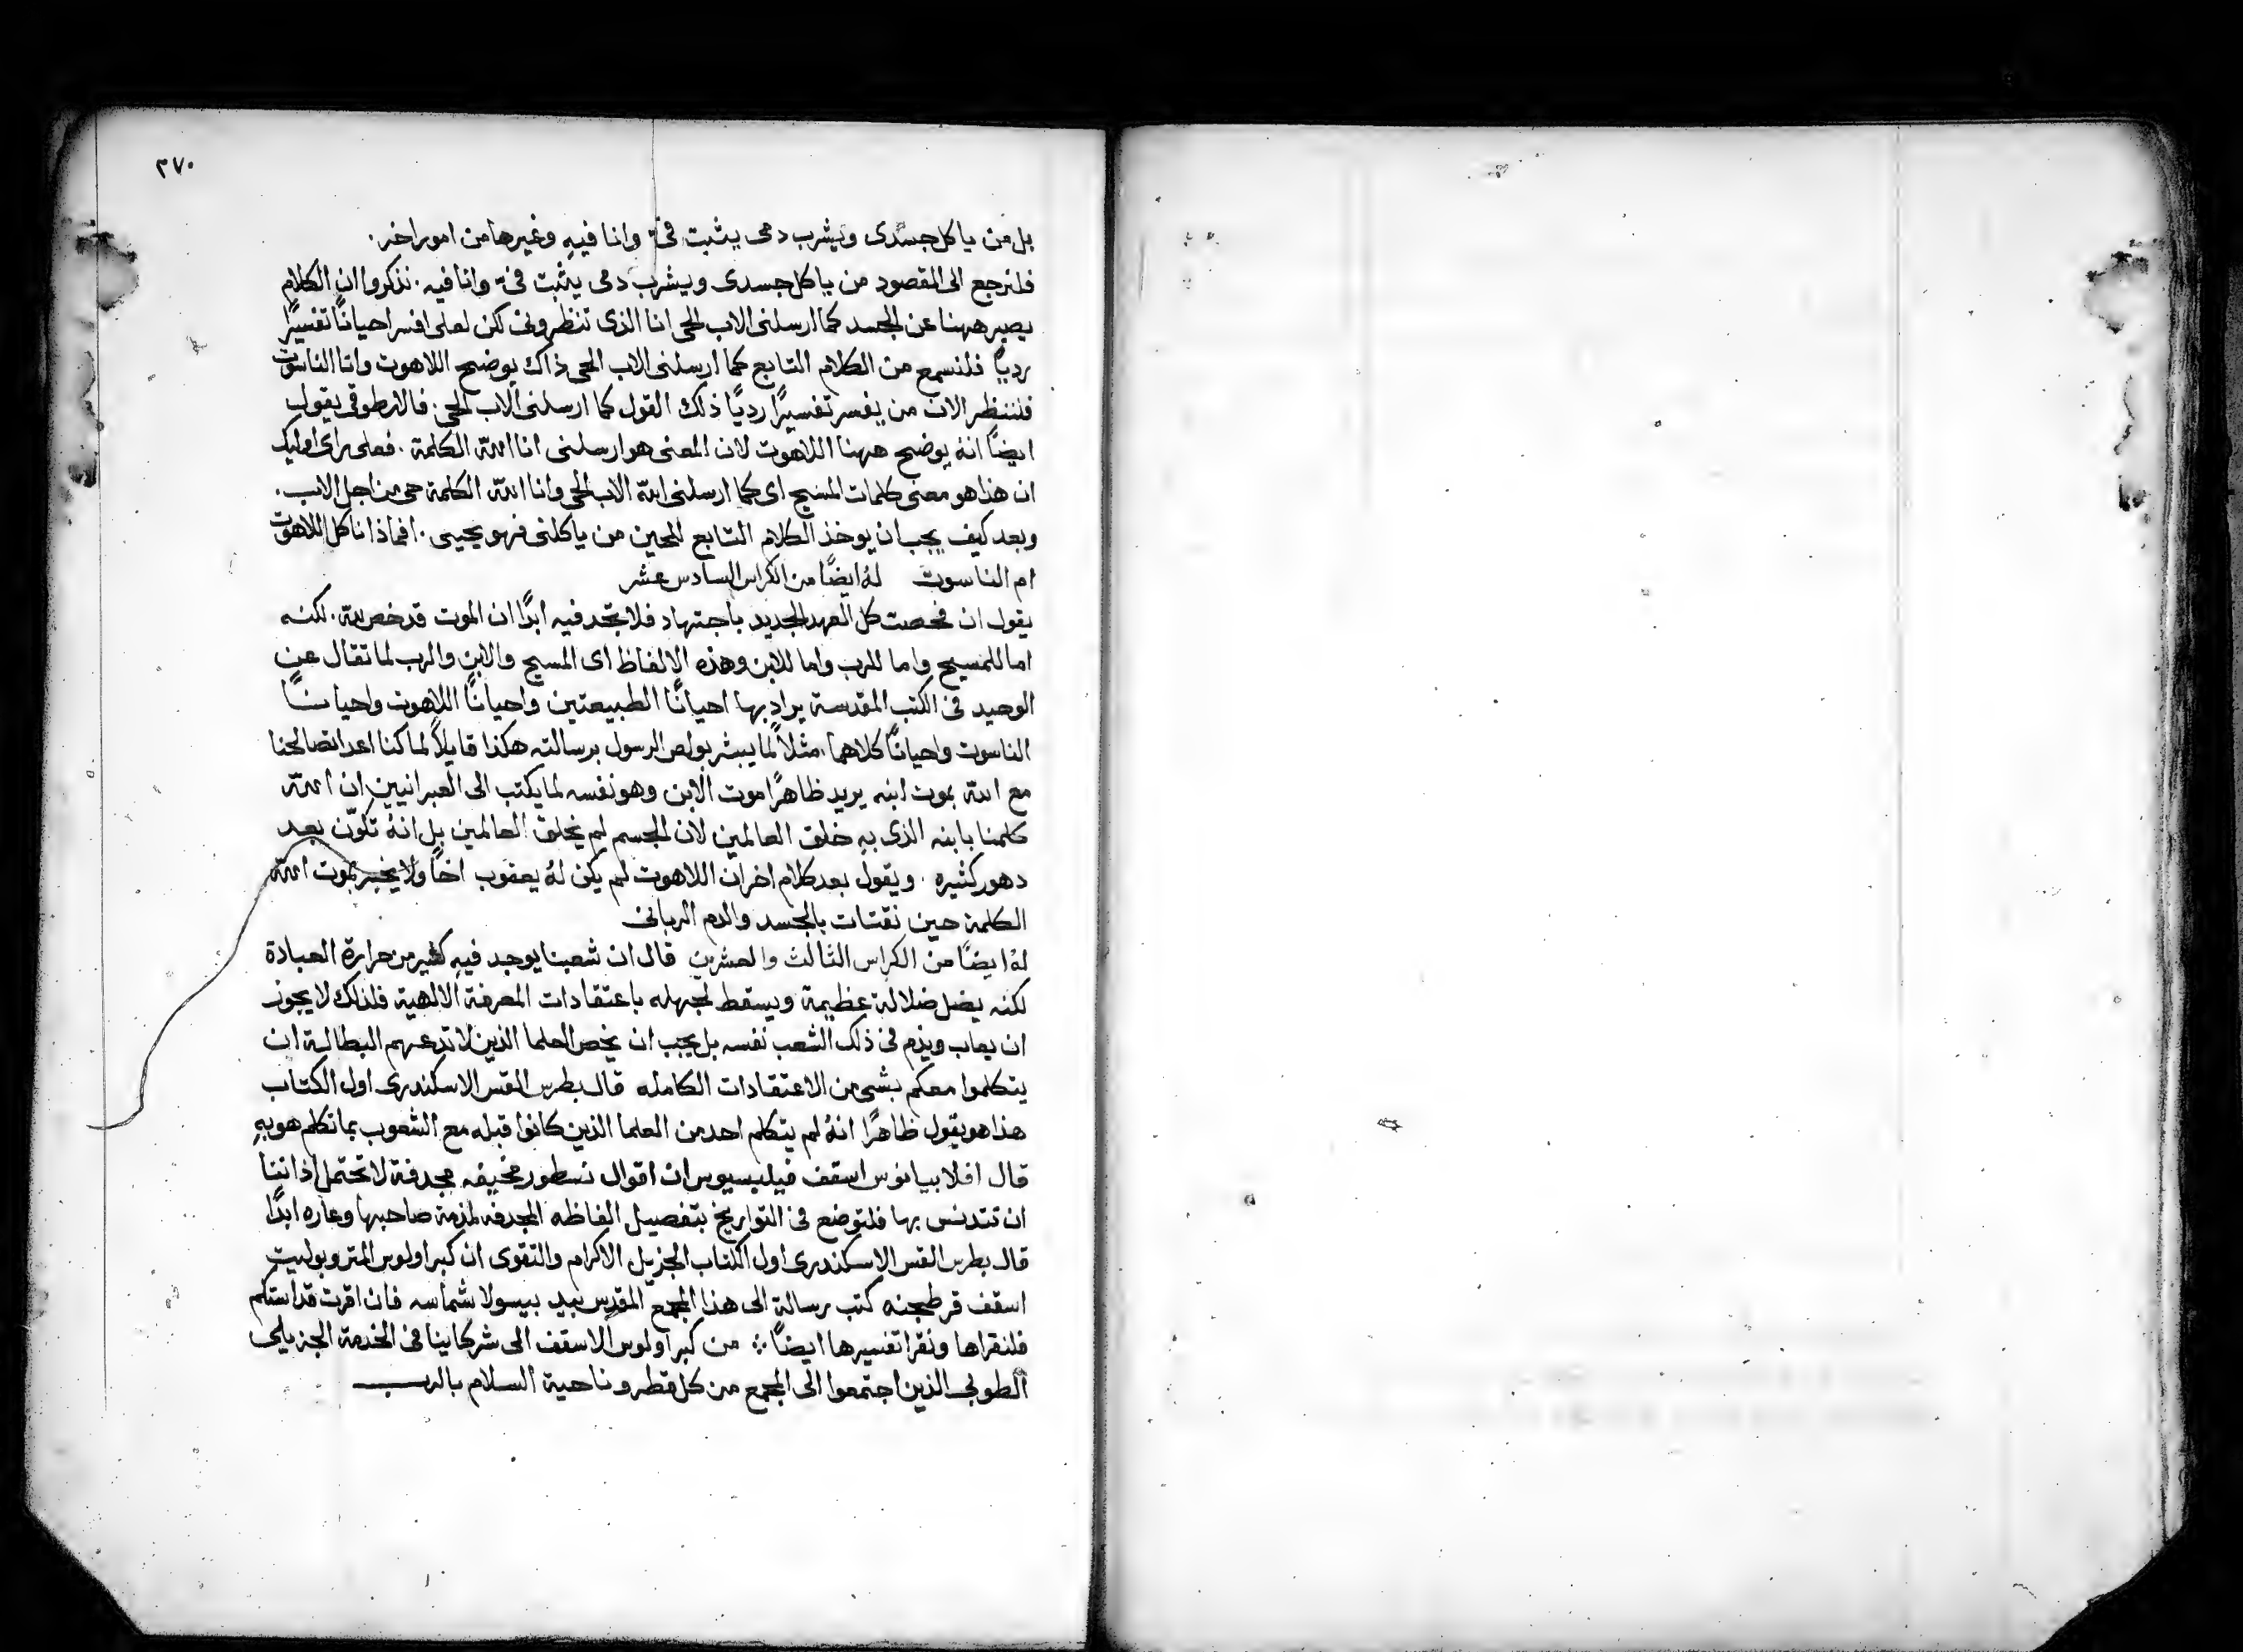 ٣٧٠
بل من ياكل جسدى ويشرب دمى يثبت فىّ وانا فيهِ وغيرها من امور اخر.
فلنرجع الى المقصود من ياكل جسدى ويشرب دمى يثبت فىّ وانا فيه. نذكروا ان الكلام
يصير ههنا عن الجسد كما ارسلنى الاب الحى انا الذى تنظرونى لكن لعلى افسر احيانًا تفسيرًا
رديًا فلنسمع من الكلام التابع كما ارسلنى الاب الحى ذاك يوضح اللاهوت وانا الناسوت
فلننظر الان من يفسر تفسيرًا رديًا ذلك القول كما ارسلنى الاب الحى. فالارطوقى يقول
ايضًا انهُ يوضح ههنا اللاهوت لان المعنى هو ارسلنى انا الله الكلمة. فعلى راى اوليك
ان هذا هو معنى كلمات المسيح اى كما ارسلنى الله الاب الحى وانا الله الكلمة حى من اجل الاب.
وبعد كيف يجب ان يوخذ الكلام التابع للحين من ياكلنى فهو يحيى. افماذا ناكل اللاهوت
ام الناسوت لهُ ايضًا من الكراس السادس عشر
يقول ان فحصت كل العهد الجديد باجتهاد فلا تجد فيه ابدًا ان الموت قد خص لله. لكنه
اما للمسيح واما للرب واما للابن وهذه الالفاظ اى المسيح والابن والرب لما تقال عن
الوحيد فى الكتب المقدسة يراد بها احيانًا الطبيعتين واحيانًا اللاهوت واحيانًا
الناسوت واحيانًا كلاهما. مثلاً لما يبشر بولص الرسول برسالته هكذا قايلاً لما كنا اعدا تصالحنا
مع الله بموت ابنه يريد ظاهرًا موت الابن وهو نفسه لما يكتب الى العبرانيين ان الله
كلمنا بابنه الذى بهِ خلق العالمين لان الجسم لم يخلق العالمين بل انهُ تكوّن بعد
دهور كثيره. ويقول بعد كلام اخر ان اللاهوت لم يكن لهُ يعقوب اخًا ولا يخبر بموت الله
الكلمة حين نقتات بالجسد والدم الربانى
لهُ ايضًا من الكراس الثالث والعشرين قال ان شعبنا يوجد فيهِ كثير من حرارة العبادة
لكنه يضل ضلالة عظيمة ويسقط لجهله باعتقادات المعرفة الالهية فلذلك لا يجوز
ان يعاب ويذم فى ذلك الشعب نفسه بل يجب ان يخص العلما الذين لا تدعهم البطالة ان
يتكلموا معكم بشى من الاعتقادات الكامله قال بطرس القس الاسكندرى اول الكتاب
هذا هو يقول ظاهرًا انهُ لم يتكلم احد من العلما الذين كانوا قبله مع الشعوب بما تكلم هو بهِ
قال افلابيانوس اسقف فيلبسيوس ان اقوال نسطور مخيفه مجدفة لا تحتمل اذاننا
ان تتدنس بها فلتوضع فى التواريخ بتفصيل الفاظه المجدفه لمذمة صاحبها وعاره ابدًا
قال بطرس القس الاسكندرى اول الكتاب الجزيل الاكرام والتقوى ان كبراولوس المتروبوليت
اسقف قرطجنه كتب رسالة الى هذا المجمع المقدس بيد بيسولا شماسه فان اقرت قداستكم
فلنقراها ونقرا تفسيرها ايضًا ∴ من كبراولوس الاسقف الى شركاينا فى الخدمة الجزيلى
الطوبى الذين اجتمعوا الى المجمع من كل قطر وناحية السلام بالرب